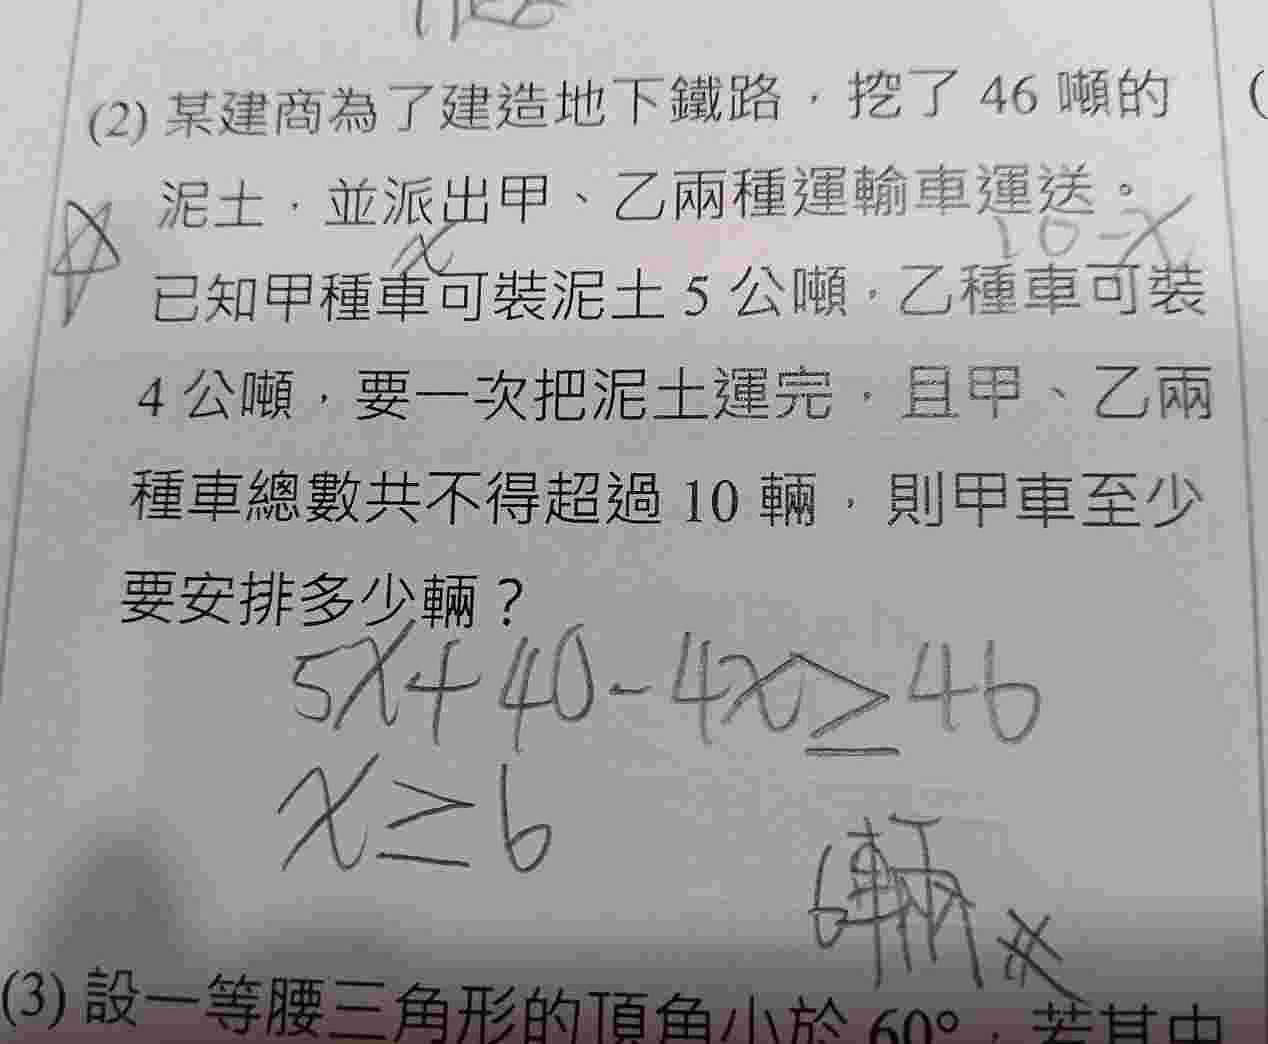 (2) 某建商為了建造地下鐵路，挖了 46 噸的
泥土，並派出甲、乙兩種運輸車運送。
x 10-x
已知甲種車可裝泥土 5 公噸，乙種車可裝
4 公噸，要一次把泥土運完，且甲、乙兩
種車總數共不得超過 10 輛，則甲車至少
要安排多少輛？
5x+40-4x≥46
x≥6
6輛#
(3) 設一等腰三角形的頂角小於 60°，若其中